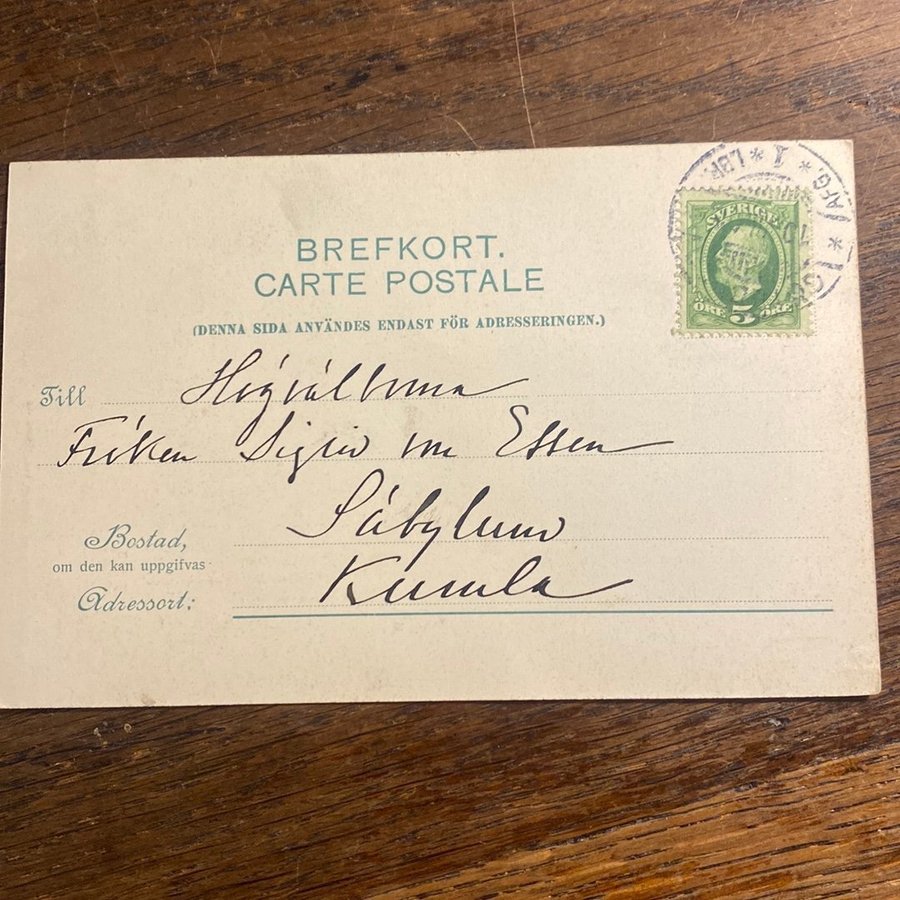 BREFKORT.
CARTE POSTALE
(DENNA SIDA ANVÄNDES ENDAST FÖR ADRESSERINGEN.)
SVERIGE
ÖRE 5 ÖRE
AFG. * 1 * LBR.
Till Högvälborna
Fröken Sigrid von Essen
Säbylund
Bostad,
om den kan uppgifvas
Adressort: Kumla